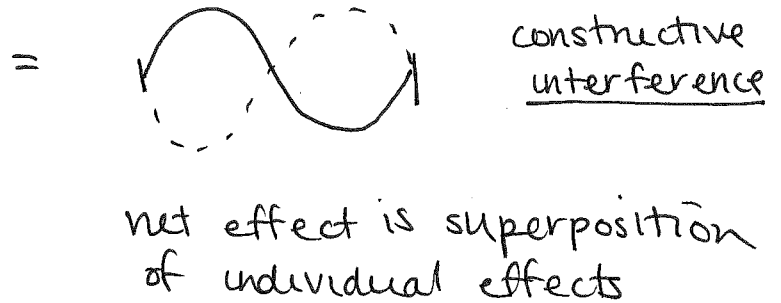 = constructive
interference
net effect is superposition
of individual effects